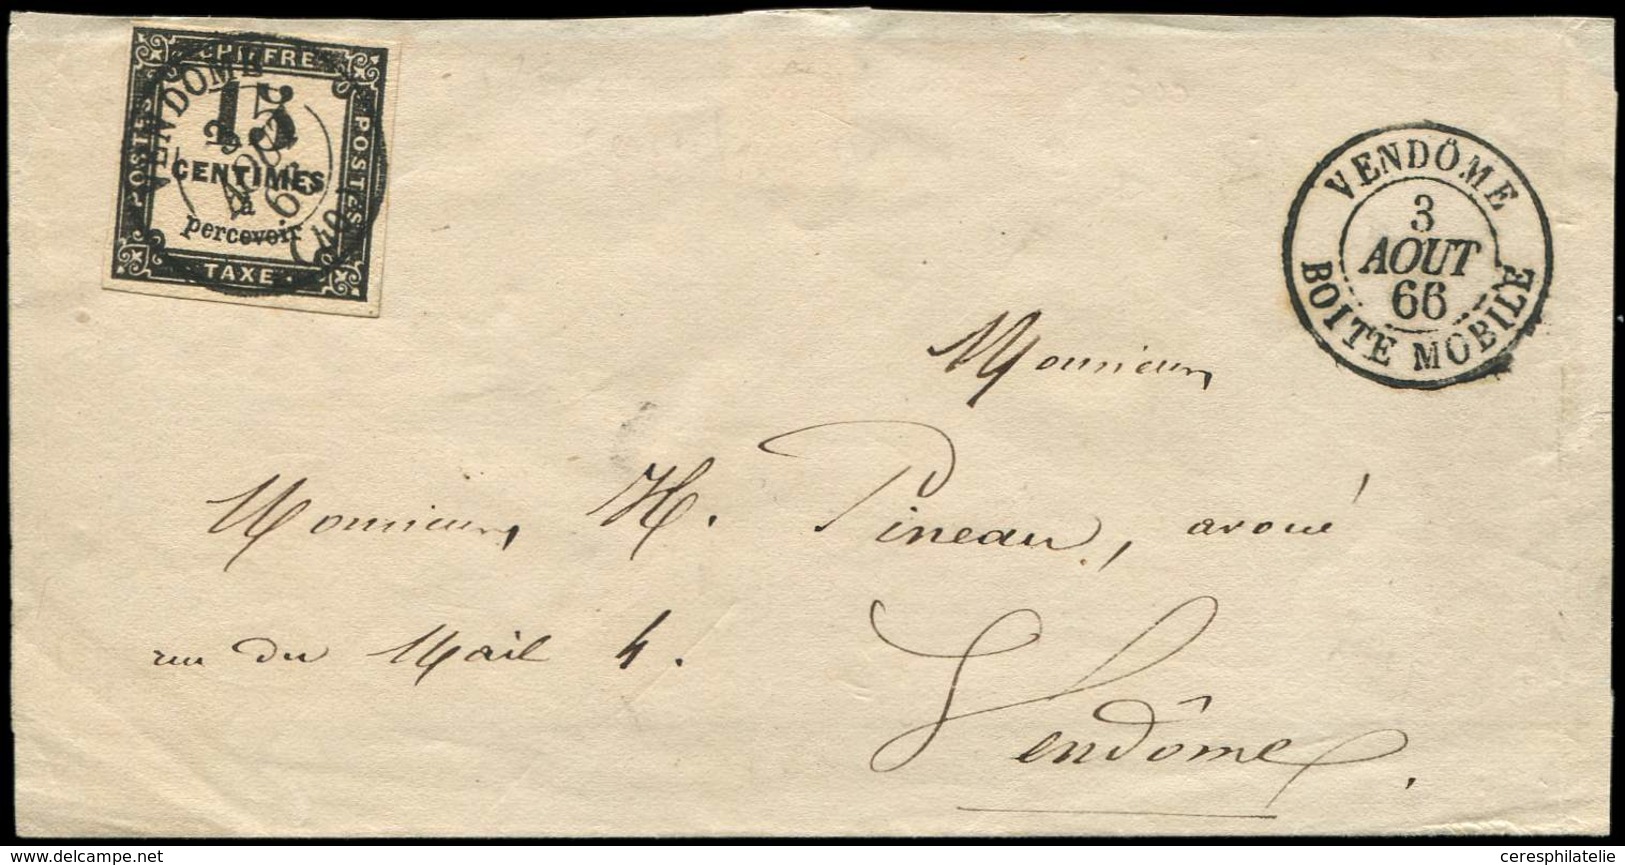 CHIFFRE
15
CENTIMES
à
percevoir
TAXE
POSTES
POSTES
VENDOME
AOUT
66
(40)
VENDÔME
3
AOUT
66
BOITE MOBILE
Monsieur
Monsieur H. Pineau, avoué
rue du Mail 4.
Vendôme.
ceresphilatelie